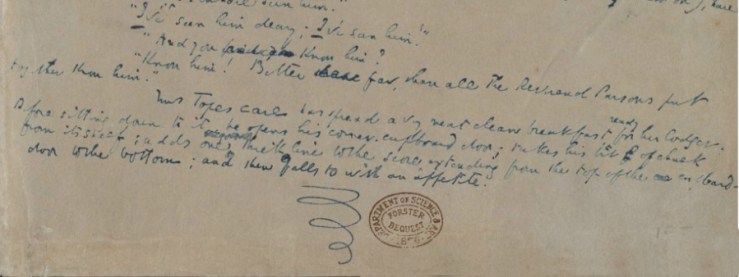 "I've seen him deary; I've seen him!"
"And you know him?"
"Know him! Better far, than all the Reverend Parsons put
together know him."
Mrs Topes care has spread a very neat clean breakfast ready for her lodger.
Before sitting down to it, he opens his corner-cupboard door; takes his bit of chalk
from its shelf; adds one thick line to the score, extending from the top of the cupboard-
door to the bottom; and then falls to with an appetite.
DEPARTMENT OF SCIENCE &
FORSTER
BEQUEST